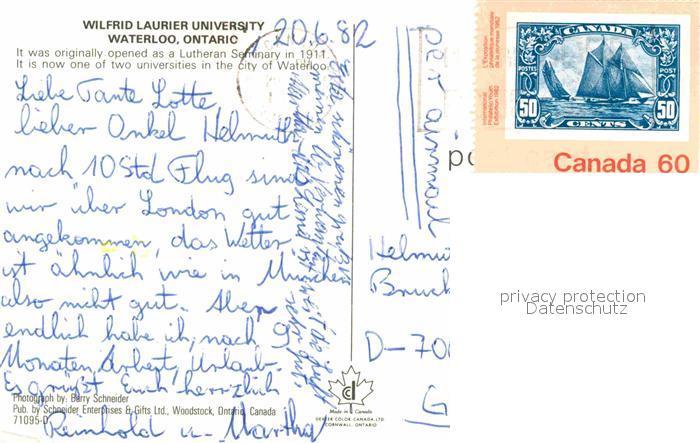 WILFRID LAURIER UNIVERSITY
WATERLOO, ONTARIO
It was originally opened as a Lutheran Seminary in 1911.
It is now one of two universities in the city of Waterloo.
20.6.82
Liebe Tante Lotte,
lieber Onkel Helmuth
nach 10 Std Flug sind
wir über London gut
angekommen, das Wetter
ist ähnlich wie in München
also nicht gut. Aber
endlich habe ich, nach 9
Monaten Arbeit, Urlaub.
Es grüßt Euch herzlich
Reinhold u. Martha
Photograph by: Barry Schneider
Pub. by Schneider Enterprises & Gifts Ltd., Woodstock, Ontario, Canada
71095-D
Made in Canada
DEXTER COLOR CANADA, LTD.
CORNWALL, ONTARIO
par airmail
po
Helmu
Bruck
D-700
G
International
Philatelic Youth
Exhibition 1982
L'Exposition
philatélique mondiale
de la jeunesse 1982
CANADA
POSTES
POSTAGE
50
50
CENTS
Canada 60
privacy protection
Datenschutz